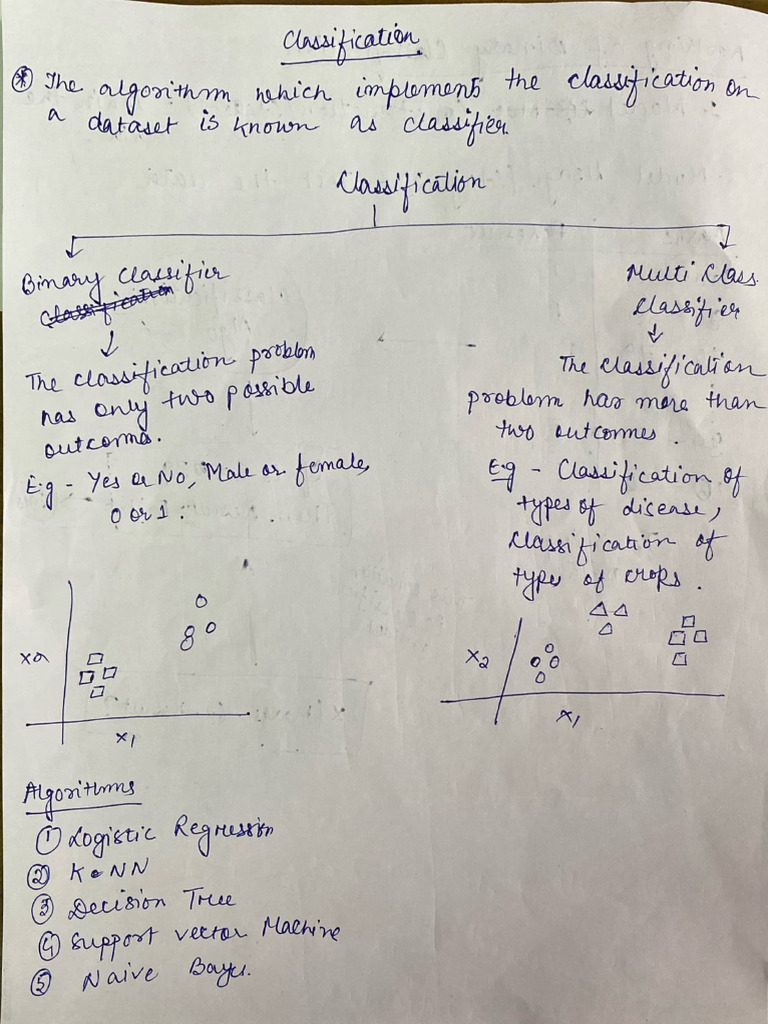 Classification
* The algorithm which implements the classification on
a dataset is known as classifier.
Classification
Binary Classifier
Classification
The classification problem
has only two possible
outcoms.
E.g - Yes or No, Male or female,
0 or 1.
Multi Class
Classifier
The classification
problem has more than
two outcomes.
Eg - Classification of
types of disease,
Classification of
type of crops.
X2
X1
X2
X1
Algorithms
① Logistic Regression
② K-NN
③ Decision Tree
④ Support vector Machine
⑤ Naive Bayes.